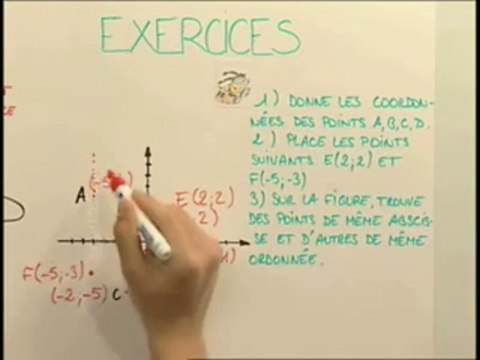 EXERCICES
1) DONNE LES COORDON-
NÉES DES POINTS A,B,C,D.
2) PLACE LES POINTS
SUIVANTS E(2;2) ET
F(-5;-3)
3) SUR LA FIGURE, TROUVE
DES POINTS DE MÊME ABSCIS-
SE ET D'AUTRES DE MÊME
ORDONNÉE.
A
E(2;2)
2)
1)
F(-5;-3)
(-2,-5) C